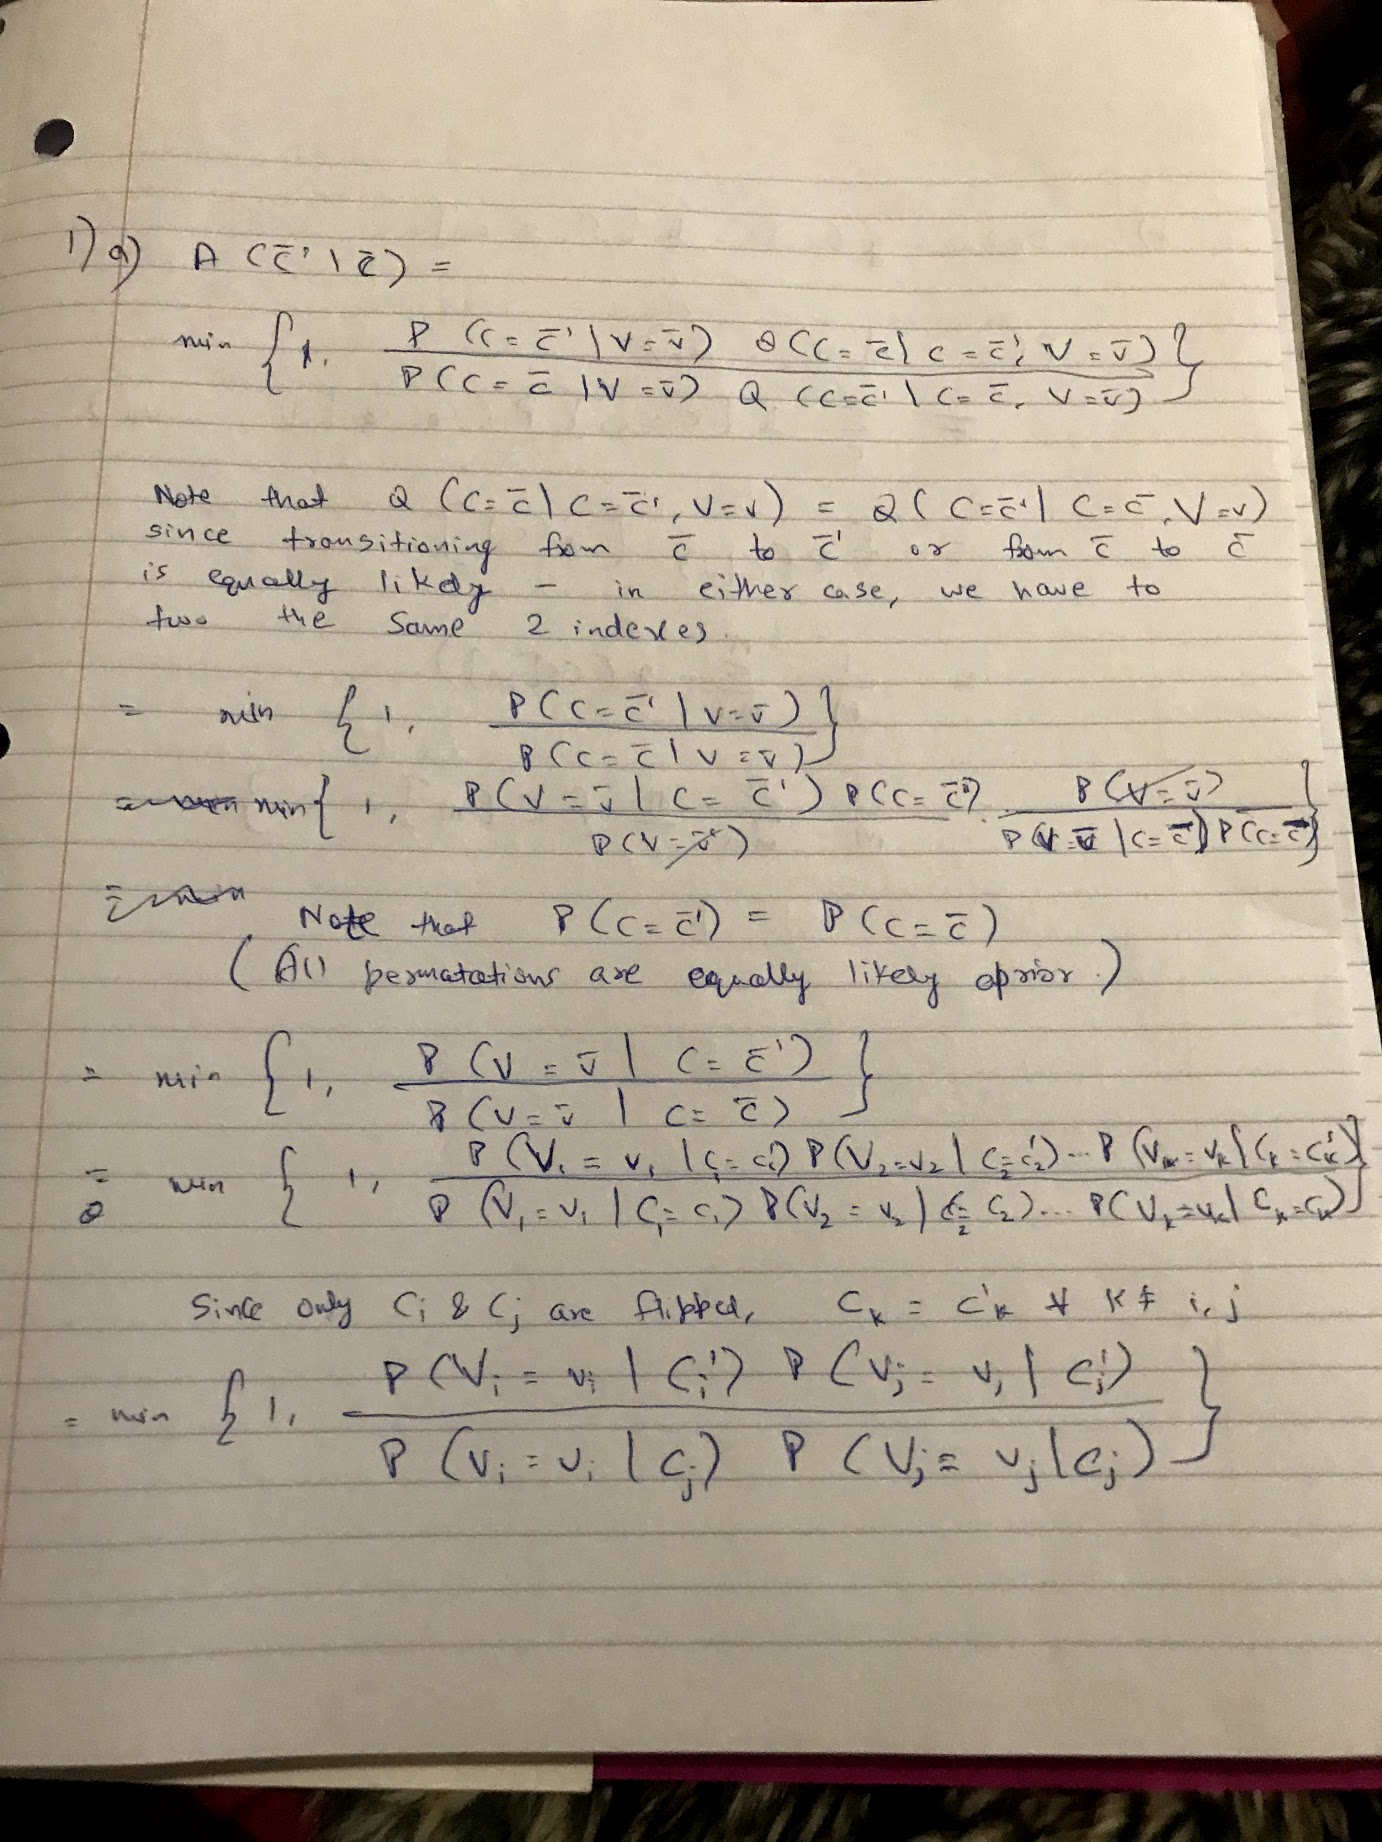 1) a) A (c̄' | c̄) =
min { 1, P (C = c̄' | V = v̄) Q (C = c̄ | C = c̄', V = v̄) / P (C = c̄ | V = v̄) Q (C = c̄' | C = c̄, V = v̄) }
Note that Q (C = c̄ | C = c̄', V = v) = Q ( C = c̄' | C = c̄, V = v)
since transitioning from c̄ to c̄' or from c̄ to c̄
is equally likely – in either case, we have to
the same 2 indexes.
= min { 1, P (C = c̄' | V = v̄) / P (C = c̄ | V = v̄) }
= min { 1, P (V = v̄ | C = c̄') P (C = c̄') / P (V = v̄) · P (V = v̄) / P (V = v̄ | C = c̄) P (C = c̄) }
Note that P (C = c̄') = P (C = c̄)
( All permutations are equally likely aprior. )
= min { 1, P (V = v̄ | C = c̄') / P (V = v̄ | C = c̄) }
= min { 1, P (V₁ = v₁ | C₁ = c₁') P (V₂ = v₂ | C₂ = c₂') ... P (Vₖ = vₖ | Cₖ = cₖ') / P (V₁ = v₁ | C₁ = c₁) P (V₂ = v₂ | C₂ = c₂) ... P (Vₖ = vₖ | Cₖ = cₖ) }
Since only Cᵢ & Cⱼ are flipped, Cₖ = C'ₖ ∀ K ≠ i, j
= min { 1, P (Vᵢ = vᵢ | Cᵢ') P (Vⱼ = vⱼ | Cⱼ') / P (Vᵢ = vᵢ | Cⱼ) P (Vⱼ = vⱼ | Cⱼ) }